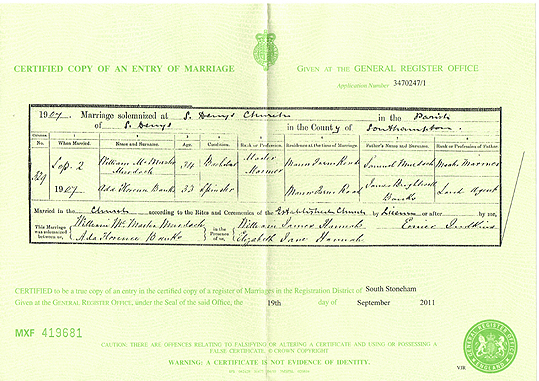 CERTIFIED COPY OF AN ENTRY OF MARRIAGE
GIVEN AT THE GENERAL REGISTER OFFICE
Application Number 3470247/1
1907. Marriage solemnized at S. Denys Church in the Parish
of S. Denys in the County of Southampton.
No. When Married. Name and Surname. Age. Condition. Rank or Profession. Residence at the time of Marriage. Father's Name and Surname. Rank or Profession of Father.
329 Sep. 2 William McMaster Murdoch 34 Bachelor Master Mariner Manor Farm Road Samuel Murdoch Master Mariner
1907. Ada Florence Banks 33 Spinster Manor Farm Road James Banks Land Agent
Married in the Church according to the Rites and Ceremonies of the Established Church by Licence or after by me,
This Marriage was solemnized between us, William McMaster Murdoch in the Presence of us, William James Hannah
Ada Florence Banks Elizabeth Jane Hannah
CERTIFIED to be a true copy of an entry in the certified copy of a register of Marriages in the Registration District of South Stoneham
Given at the GENERAL REGISTER OFFICE, under the Seal of the said Office, the 19th day of September 2011
MXF 419681
CAUTION: THERE ARE OFFENCES RELATING TO FALSIFYING OR ALTERING A CERTIFICATE AND USING OR POSSESSING A
FALSE CERTIFICATE. © CROWN COPYRIGHT
WARNING: A CERTIFICATE IS NOT EVIDENCE OF IDENTITY.
GENERAL REGISTER OFFICE
ENGLAND